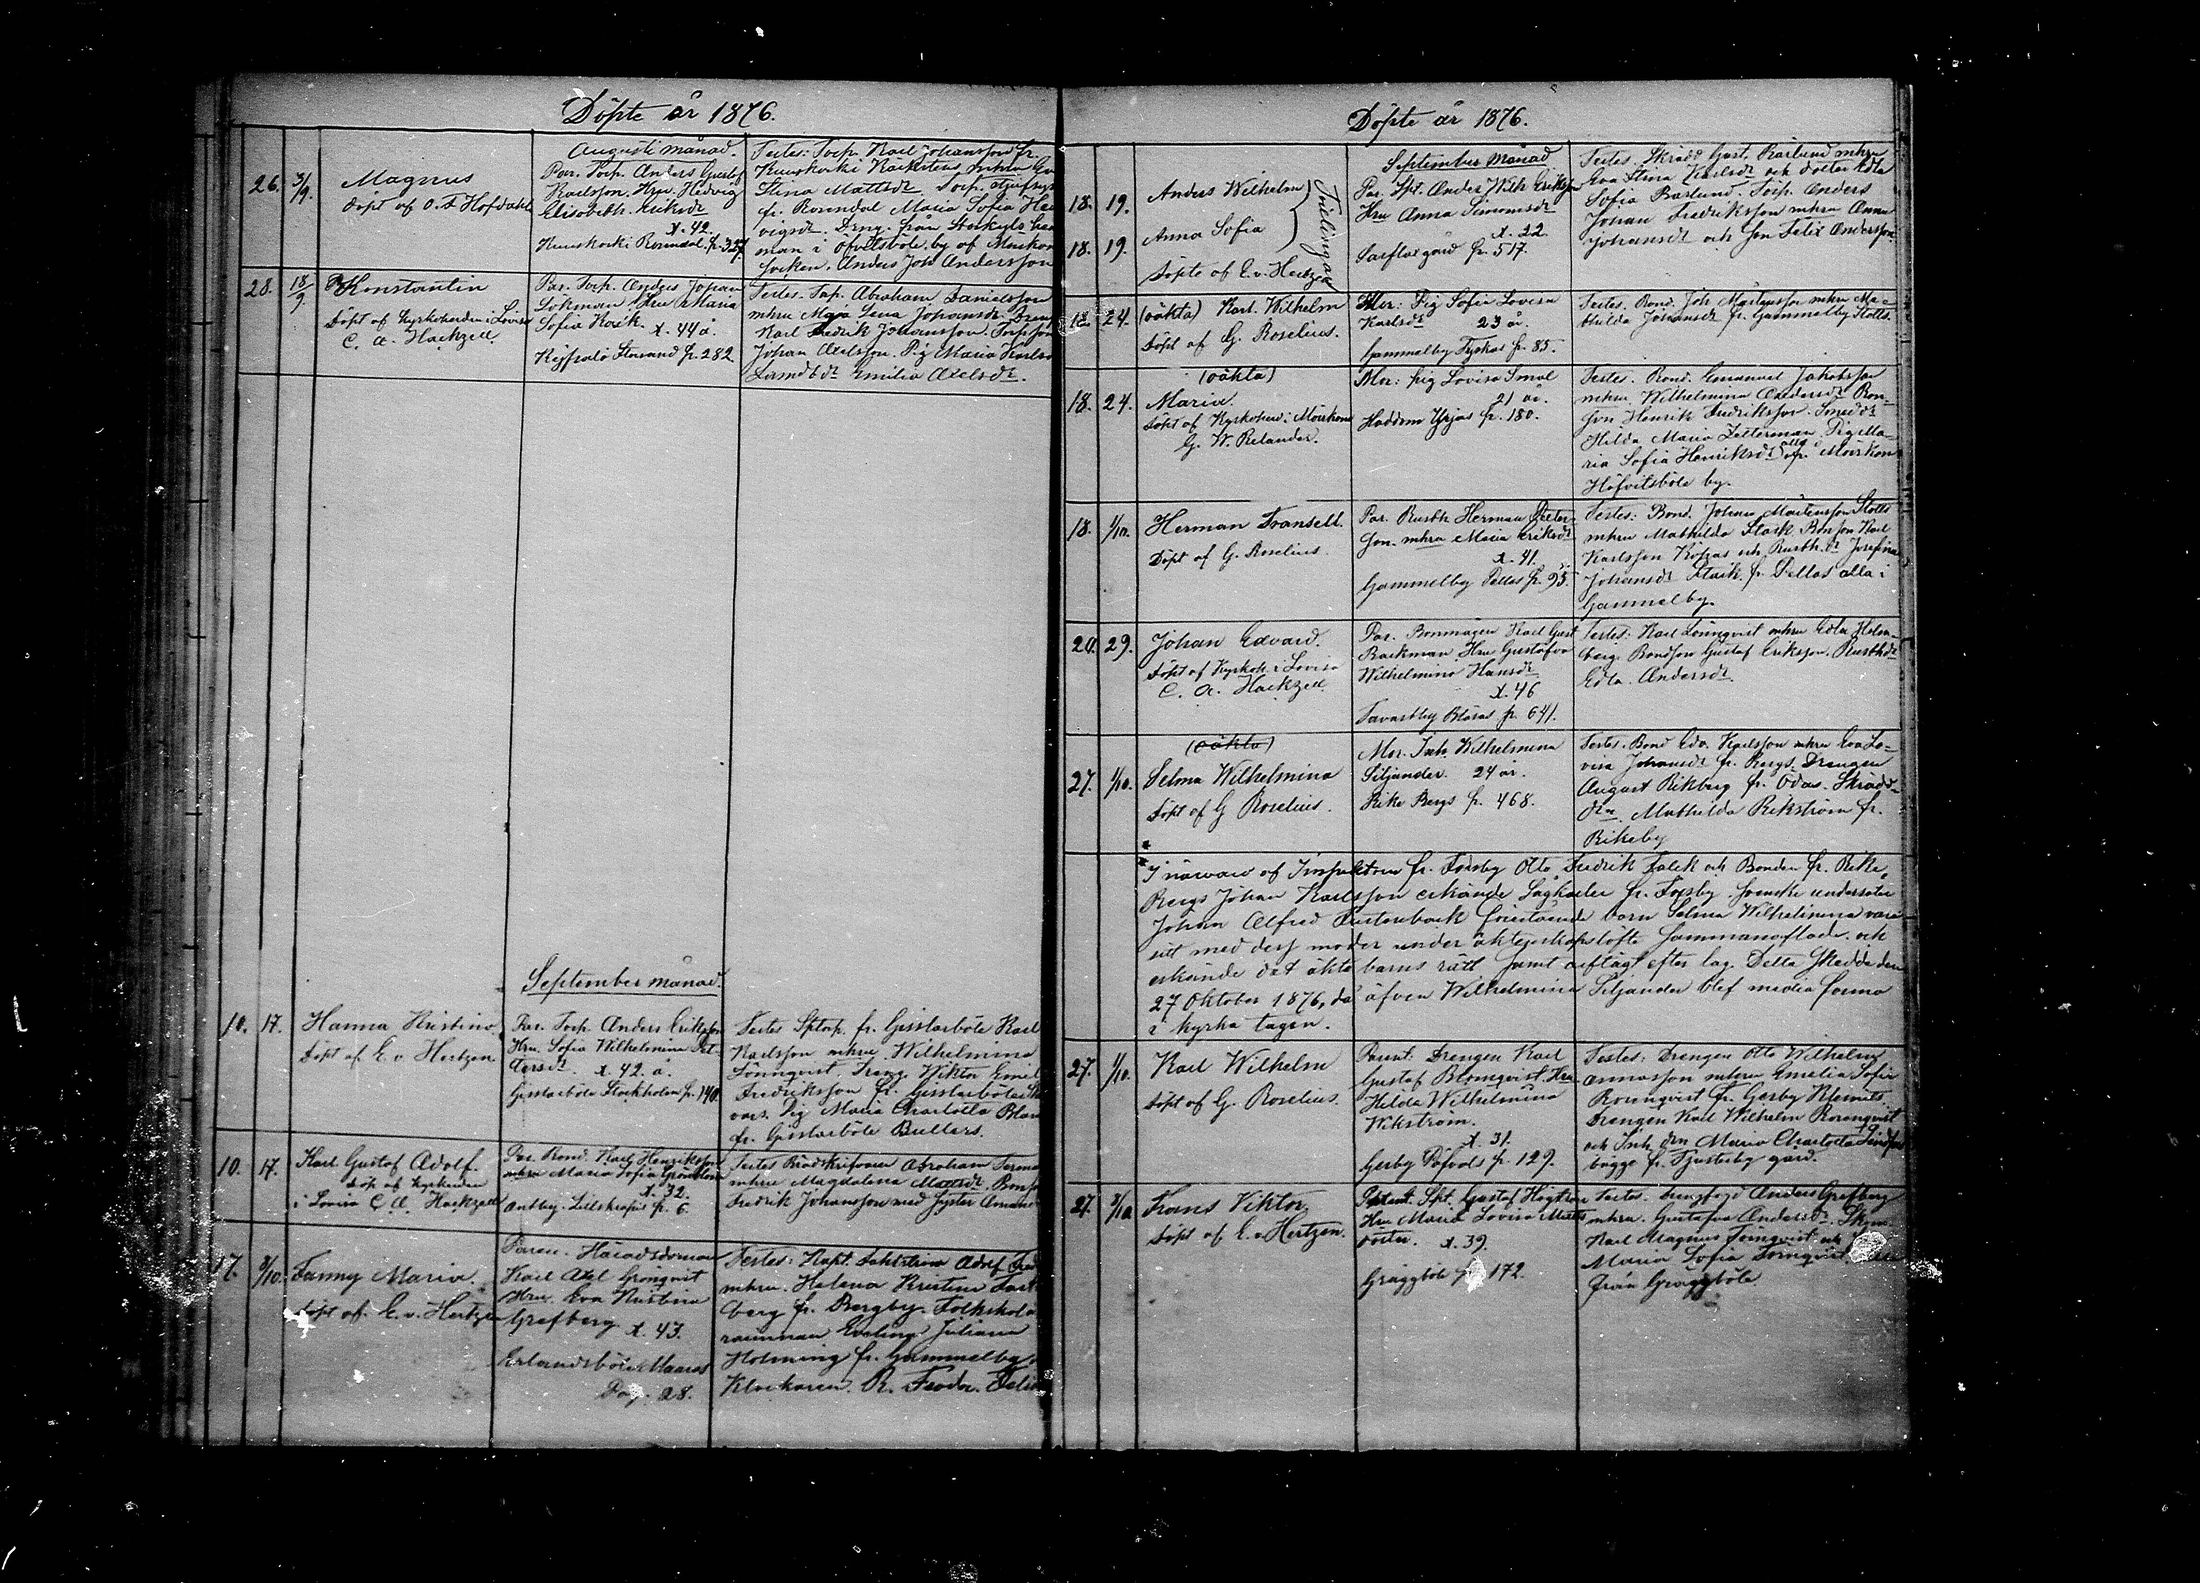 Döpte år 1876.
Augusti månad.
26. 3/9. Magnus
döpt af O. F. Hofdahl
Par. Torp. Anders Gustaf
Karlsson. Hru. Hedvig
Elisabeth. Eriksdr
x. 42.
Kuuskoski Rosendal. p. 327.
Testes: Torp. Karl Johansson fr.
Kuuskoski
Stina Mattsdr Torp.
fr. Rosendal Maria Sofia
Dräng. från
man i by af Mörskom
socken. Anders Joh Andersson
28. 18/9. Konstantin
döpt af kyrkoherden i Lovisa
C. A. Hackzell.
Par. Torp. Anders Johan
Lökman Hru Maria
Sofia x. 44 å.
Starand p. 282
Testes. Torp. Abraham Danielsson
mhru Maja Lena Johansdr Dräng
Karl Fredrik Johansson Torpson
Johan Axelsson. Pig Maria Karls
Emilia Axelsdr.
September månad.
10. 17. Hanna Kristina
Döpt af E. v Hertzen
Par. Torp. Anders Eriksson
Hru. Sofia Wilhelmina Pet-
tersdr. x. 42. å.
Gisslarböle Stockholm p. 140.
Testes Sptorp. fr. Gisslarböle Karl
Karlsson mhru Wilhelmina
Lönnqvist. Dräng. Wiktor Emil
Fredriksson fr. Gisslarböle
Pig Maria Charlotta
fr. Gisslarböle Bullers.
10. 17. Karl Gustaf Adolf.
Döp. af kyrkherden
i Lovisa C A. Hackzell
Par. Bond. Karl Henriksson
mhru Maria Sofia
x. 32.
Andby. p. 6.
Testes Abraham
mhru Magdalena Mattsdr. Bonson
Fredrik Johansson med syster
17. 3/10. Fanny Maria.
Döpt af. E. v. Hertzen
Paren. Häradsdomar
Karl Axel Grönqvist
Hru. Eva Kristina
Grefberg x. 43.
Erlandsböle Maaras
Pag. 28.
Testes: Kapt. Adolf
mhru. Helena Kristina
berg fr. Bergby. Folkskola
Evelina Juliana
Holming fr. Gammelby
Klockaren. R. Teodor.
Döpte år 1876.
September Månad
18. 19. Anders Wilhelm
18. 19. Anna Sofia
Tvillingar
döpte af E. v. Hertzen
Par. Spt. Anders Wilh Eriksson
Hru Anna Simonsdr
x. 22
Sarflax gård p. 517.
Testes. Skrädd Gust. Barlund mhru
Eva Stina Karlsdr och dotter Edla
Sofia Barlund. Torp. Anders
Johan Fredriksson mhru Anna
Johansdr och son Felix Andersson.
18. 24. (oäkta) Karl Wilhelm
döpt af G. Roselius.
Mor: Pig Sofia Lovisa
Karlsdr 23 år.
Gammelby Tyskas p. 85.
Testes. Bond. Joh Mårtensson mhru Ma-
thilda Johansdr fr. Gammelby Stotts
18. 24. (oäkta)
Maria.
döpt af Kyrkoherd i Mörskom
G. W. Relander.
Mor: pig Lovisa Smal
21 år.
Haddom Yrjas p. 180.
Testes. Bond. Emanuel Jakobsson
mhru. Wilhelmina Andersdr Bon-
son Henrik Fredriksson. Smeddr
Hilda Maria Zetterman Pig Ma-
ria Sofia Henriksdr alla fr. Mörskom
Höfvitsböle by.
18. 1/10. Herman Transell.
Döpt af G. Roselius.
Par. Rusth Herman Petter-
son. mhru Maria Eriksdr
x. 41.
Gammelby Pellas p. 95.
Testes: Bond. Johan Mårtensson Stotts
mhru Mathilda Stark Bonson Karl
Karlsson och Rusth.dr Josefina
Johansdr Stark. fr. Pellas alla i
Gammelby.
20. 29. Johan Edvard.
döpt af Kyrkoh i Lovisa
C. A. Hackzell.
Par. Bonmågen Karl Gust
Backman. Hru Gustafva
Wilhelmina Hansdr
x. 46
Tavastby Blåsas p. 641.
Testes: Karl Lönnqvist mhru Edla Holm-
berg. Bondson Gustaf Eriksson. Rusthdr
Edla. Andersdr.
27. 1/10. (oäkta)
Selma Wilhelmina
döpt af G Roselius.
Mor. Inh. Wilhelmina
Siljander. 24 år.
Rike Bergs p. 468.
Testes. Bond Edv. Karlsson mhru Eva Lo-
visa Johansdr fr. Bergs. Drengen
August Rikberg fr. Odas. Skrädd-
drn. Mathilda Rikström fr.
Rikeby
I närvaro af Inspektorn fr. Forsby Otto Fredrik Falck och Bonden fr. Rike
Bergs Johan Karlsson erkände Sågkarlen fr. Forsby svenske undersåten
Johan Alfred barn Selma Wilhelmina vara
sitt med dess moder under äktenskapslöfte sammanaflade och
erkände det äkta barns rätt samt arflagt efter lag. Detta skedde den
27 Oktober 1876, då äfven Wilhelmina Siljander blef media forma
i kyrka tagen.
27. 1/10. Karl Wilhelm
döpt af G. Roselius.
Parent. Drengen Karl
Gustaf Blomqvist. Hru
Hilda Wilhelmina
Wikström.
x. 31.
Gerby p. 129.
Testes: Drengen Otto Wilhelm
mhru Emelia Sofia
Rosenqvist fr. Gerby Klemets
Drengen Karl Wilhelm Rosenqvist
och Inh. drn Maria Charlotta
bägge fr. Tjusterby gård.
27. 3/10 Frans Viktor.
döpt af E. v. Hertzen.
Parent. Spt. Gustaf Högström
Hru Maria Lovisa Matts
doter. x. 39.
Gräggböle p. 172.
Testes. Anders Grefberg
mhru. Gustafva Andersdr.
Karl Magnus Törnqvist och
Maria Sofia Törnqvist
från Gräggböle